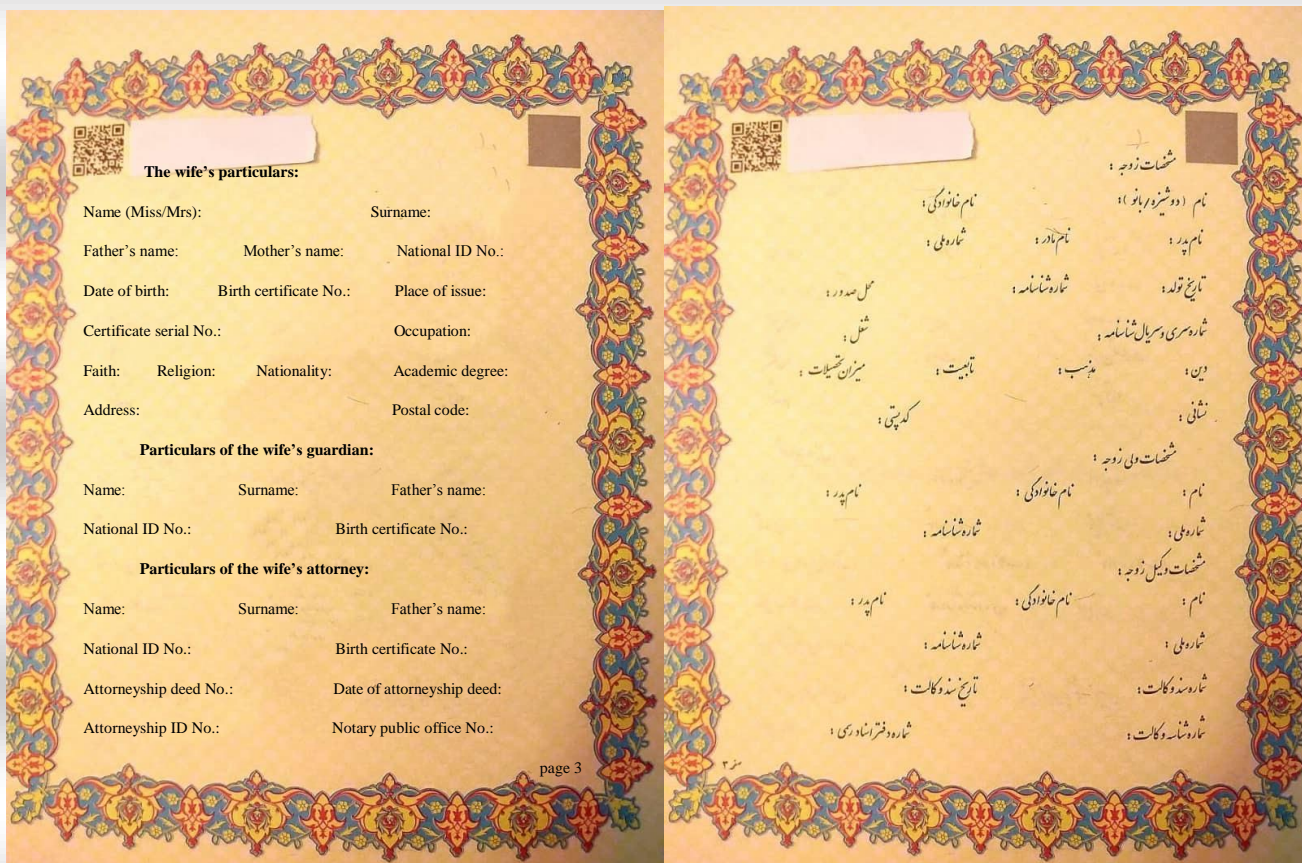 The wife's particulars:
Name (Miss/Mrs): Surname:
Father's name: Mother's name: National ID No.:
Date of birth: Birth certificate No.: Place of issue:
Certificate serial No.: Occupation:
Faith: Religion: Nationality: Academic degree:
Address: Postal code:
Particulars of the wife's guardian:
Name: Surname: Father's name:
National ID No.: Birth certificate No.:
Particulars of the wife's attorney:
Name: Surname: Father's name:
National ID No.: Birth certificate No.:
Attorneyship deed No.: Date of attorneyship deed:
Attorneyship ID No.: Notary public office No.:
page 3
مشخصات زوجه :
نام (دوشیزه/بانو): نام خانوادگی :
نام پدر : نام مادر : شماره ملی :
تاریخ تولد : شماره شناسنامه : محل صدور :
شماره سری و سریال شناسنامه : شغل :
دین : مذهب : تابعیت : میزان تحصیلات :
نشانی : کد پستی :
مشخصات ولی زوجه :
نام : نام خانوادگی : نام پدر :
شماره ملی : شماره شناسنامه :
مشخصات وکیل زوجه :
نام : نام خانوادگی : نام پدر :
شماره ملی : شماره شناسنامه :
شماره سند وکالت : تاریخ سند وکالت :
شماره شناسه وکالت : شماره دفتر اسناد رسمی :
صفحه ۳